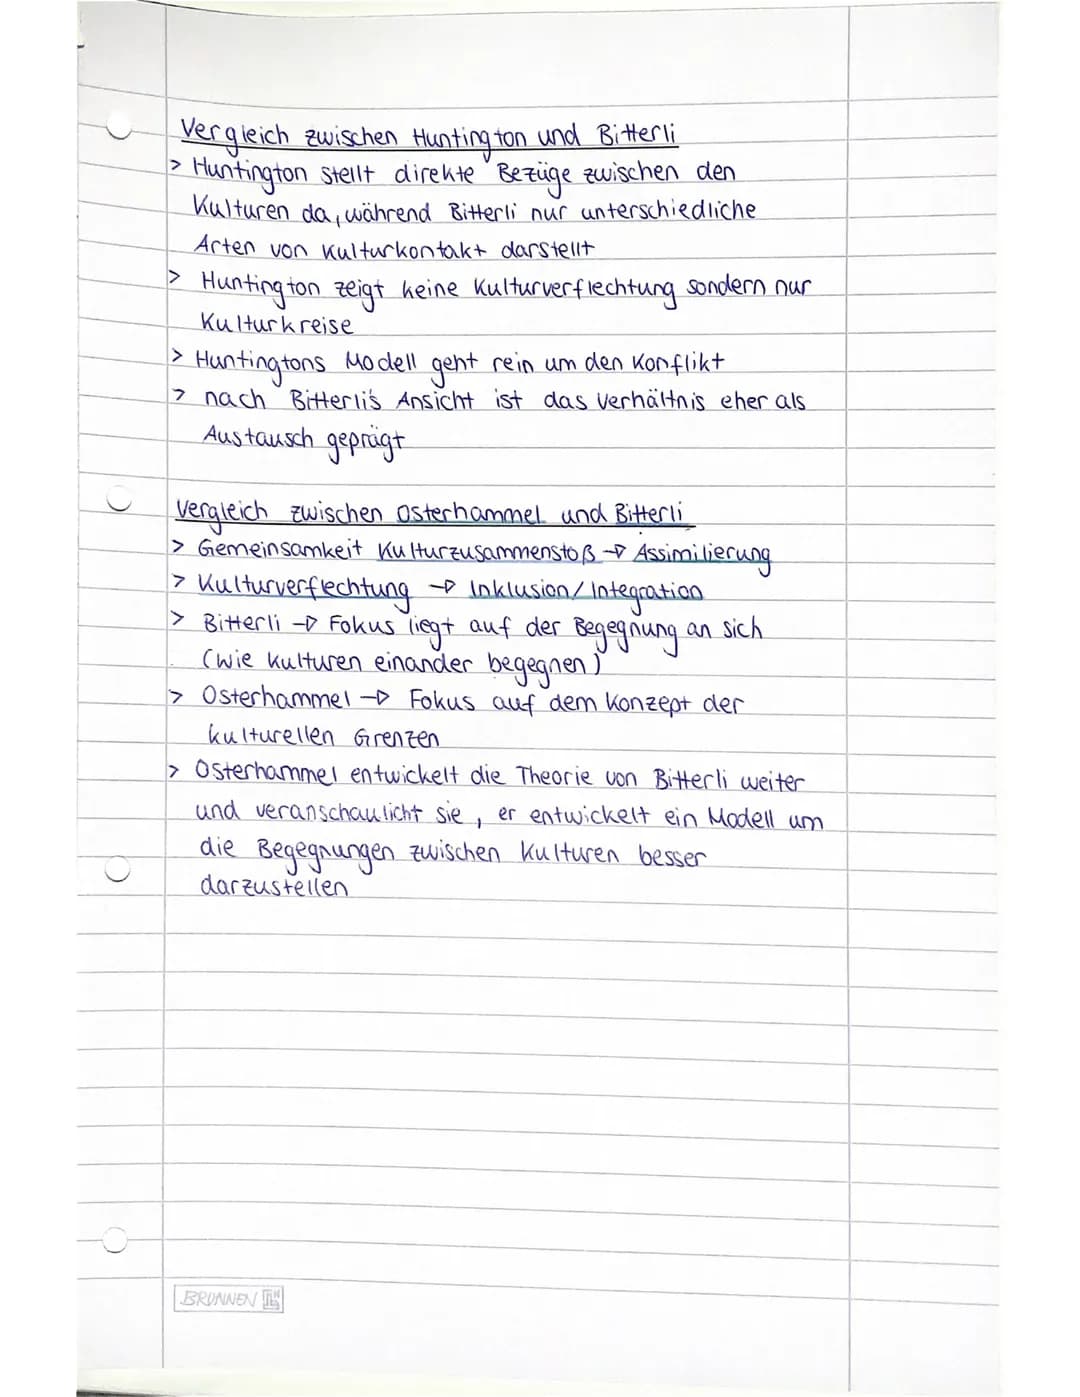 Vergleich zwischen Huntington und Bitterli
> Huntington stellt direkte Bezüge zwischen den
Kulturen da, während Bitterli nur unterschiedliche
Arten von Kulturkontakt darstellt
> Huntington zeigt keine Kulturverflechtung sondern nur
Kulturkreise
> Huntingtons Modell geht rein um den Konflikt
> nach Bitterli's Ansicht ist das Verhältnis eher als
Austausch geprägt
Vergleich zwischen Osterhammel und Bitterli
> Gemeinsamkeit Kulturzusammenstoß → Assimilierung
> Kulturverflechtung → Inklusion/Integration
> Bitterli → Fokus liegt auf der Begegnung an sich
(wie Kulturen einander begegnen)
> Osterhammel → Fokus auf dem Konzept der
kulturellen Grenzen
> Osterhammel entwickelt die Theorie von Bitterli weiter
und veranschaulicht sie, er entwickelt ein Modell um
die Begegnungen zwischen Kulturen besser
darzustellen
BRUNNEN